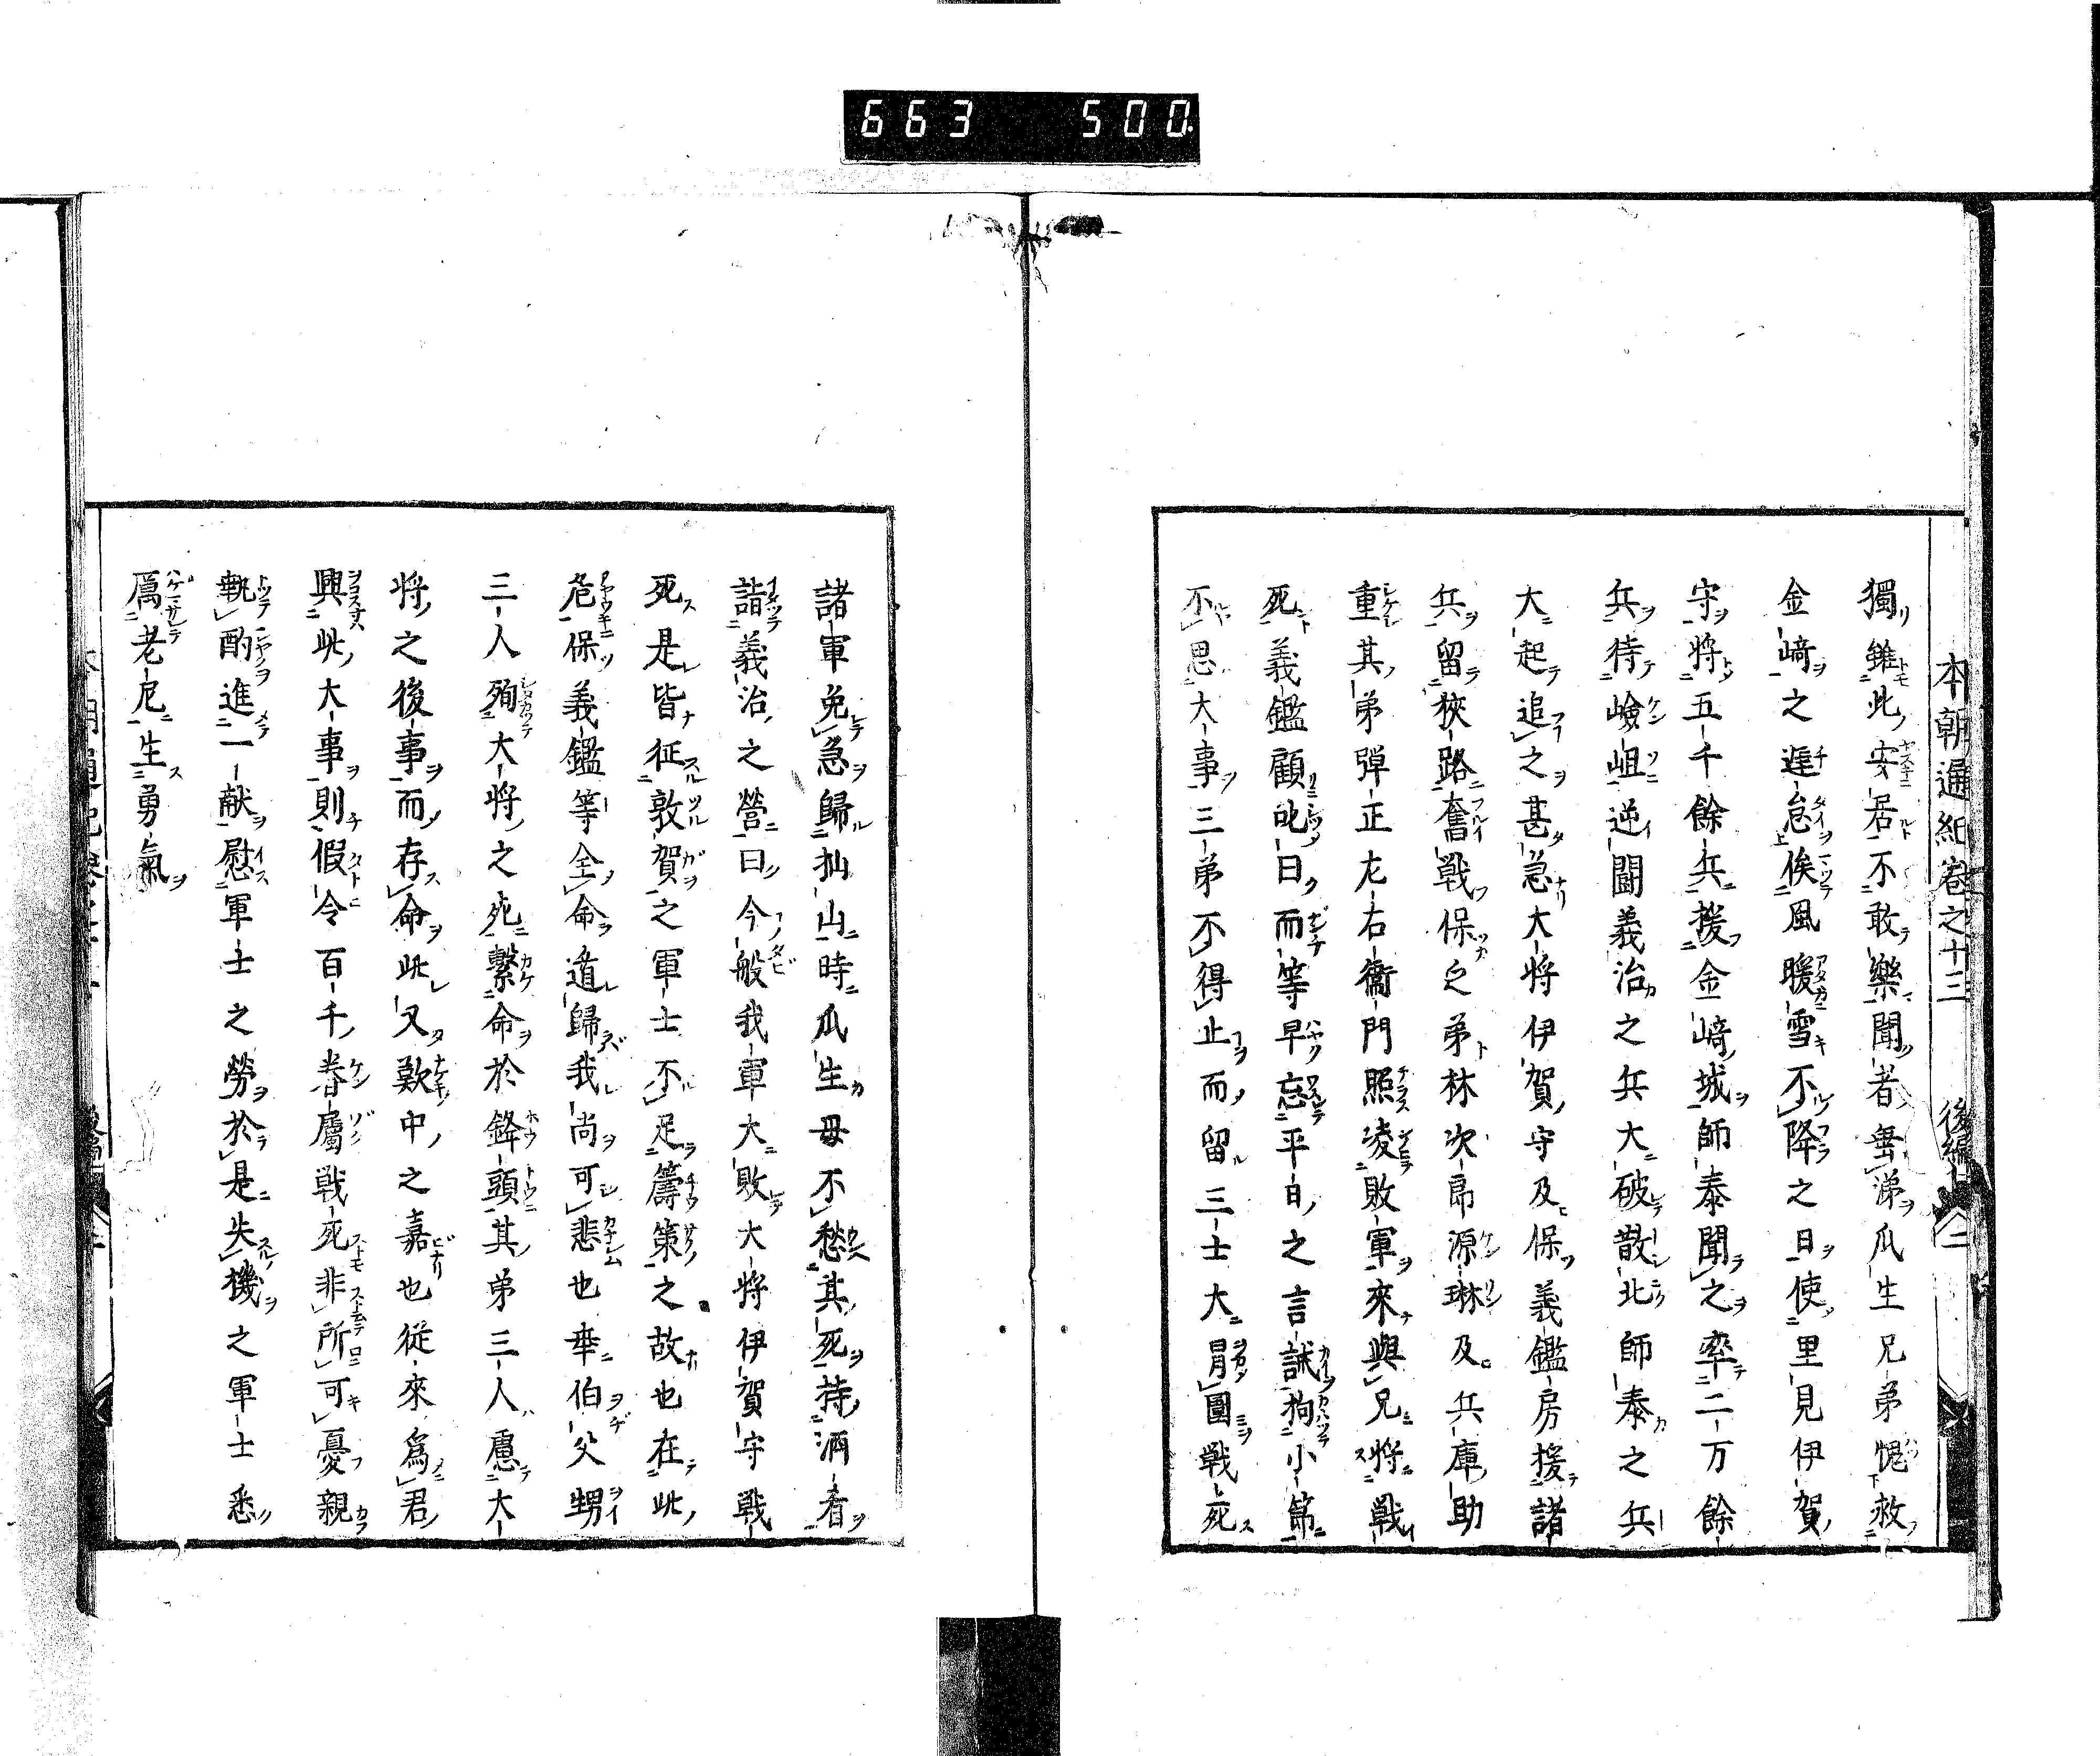 663 500.
本朝通紀卷之十三 後編
獨雖此安居不敢樂聞者無涕瓜生兄弟愧救
金﨑之遅怠俟風暖雪不降之日使里見伊賀
守將五千餘兵援金﨑城師泰聞之率二万餘
兵待嶮岨逆闘義治之兵大破散北師泰之兵
大起追之甚急大将伊賀守及保義鑑房援諸
兵留狹路奮戰保之弟林次郎源琳及兵庫助
重其弟彈正左右衞門照凌敗軍來與兄將戰
死義鑑顧叱曰而等早忘平日之言誡拘小節
不思大事三弟不得止而留三士大冐圍戰死
諸軍免急歸杣山時瓜生母不愁其死持酒肴
詣義治之營曰今般我軍大敗大将伊賀守戰
死是皆征敦賀之軍士不足籌策之故也在此
危保義鑑等全命遁歸我尚可悲也幸伯父甥
三人殉大将之死繋命於鋒頭其弟三人慮大
将之後事而存命此又歎中之嘉也從來爲君
興此大事則假令百千眷屬戰死非所可憂親
執酌進一献慰軍士之勞於是失機之軍士悉
厲老尼生勇氣